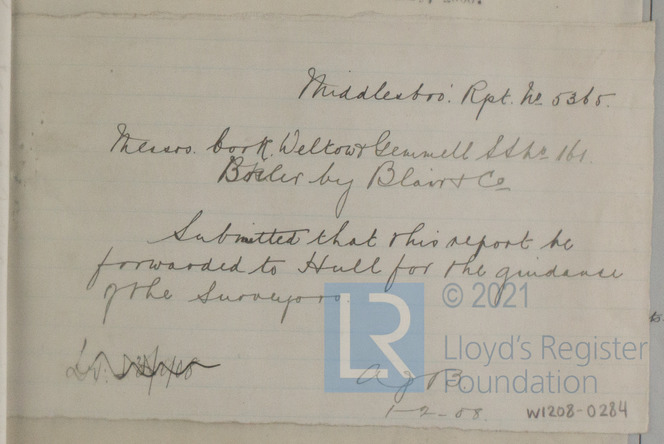 Middlesbro'. Rpt. No 5365.
Messrs. Cook. Welton & Gemmell SS No 161.
Boiler by Blair & Co
Submitted that this report be
forwarded to Hull for the guidance
of the Surveyors.
LR
© 2021
Lloyd's Register
Foundation
1-2-08
W1208-0284